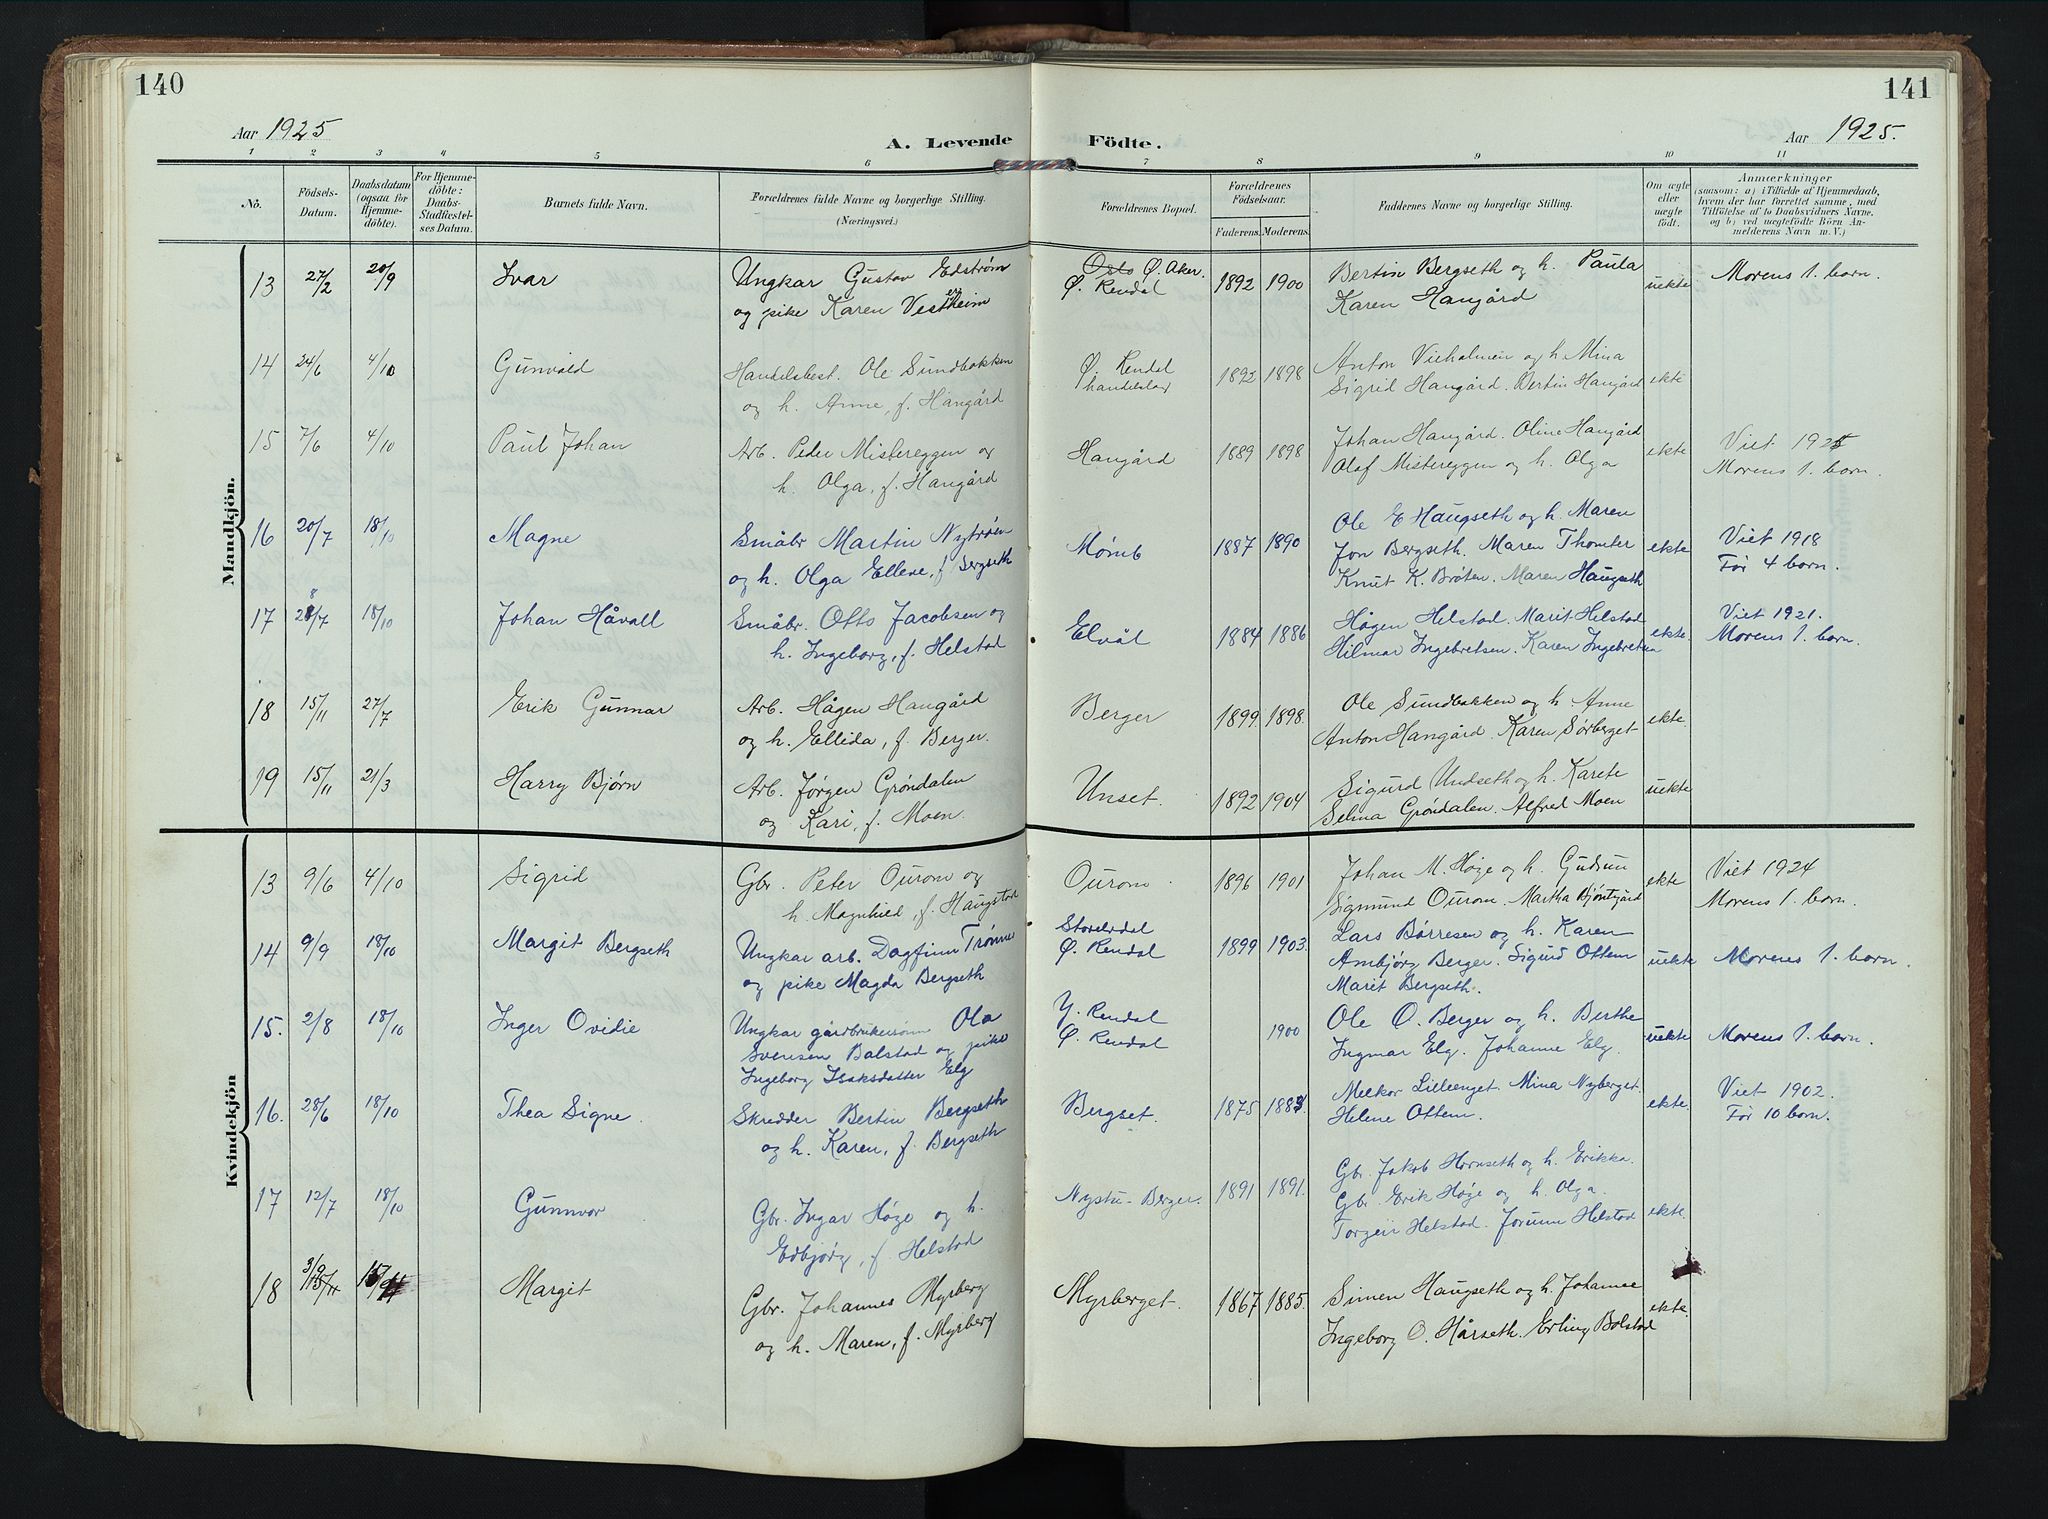 140
141
Aar 1925
A. Levende
Födte.
Aar 1925.
1 2 3 4 5 6 7 8 9 10 11
No.
Födsels-
Datum.
Daabsdatum
(ogsaa for
Hjemme-
döbte).
For Hjemme-
döbte:
Daabs-
Stadfæstel-
ses Datum.
Barnets fulde Navn.
Forældrenes fulde Navne og borgerlige Stilling.
(Næringsvei.)
Forældrenes Bopæl.
Forældrenes
Födselsaar.
Faderens. Moderens.
Faddernes Navne og borgerlige Stilling.
Om ægte
eller
uægte
födt.
Anmærkninger
(saasom: a) i Tilfælde af Hjemmedaab,
hvem der har forrettet samme, med
Tilföielse af to Daabsvidners Navne,
og b) ved uægtefödte Börn An-
melderens Navn m. V.)
Mandkjön.
13 27/2 20/9 Ivar
Ungkar Gustav Edstrøm
og pike Karen Vestheim
Oslo Ø. Aker.
Ø. Rendal
1892 1900
Bertin Bergseth og h. Paula
Karen Hangård
uekte
Morens 1. barn.
14 24/6 4/10 Gunvald
Handelsbest. Ole Sundbakken
og h. Anne, f. Hangård
Ø. Rendal
handelslag
1892 1898
Anton Vieholmen og h. Mina
Sigrid Hangård. Bertin Hangård
ekte
15 7/6 4/10 Paul Johan
Arb. Peder Mistereggen og
h. Olga, f. Hangård
Hangård
1889 1898
Johan Hangård. Oline Hangård
Olaf Mistereggen og h. Olga
ekte
Viet 1925
Morens 1. barn.
16 20/7 18/10 Magne
Småbr Martin Nytrøen
og h. Olga Ellene, f. Bergseth
Mømb
1887 1890
Ole E Haugseth og h. Maren
Jon Bergseth. Maren Thomter
Knut K. Bråten. Maren Haugseth
ekte
Viet 1918
Før 4 barn.
17 28/7 18/10 Johan Håvall
Småbr. Otto Jacobsen og
h. Ingeborg, f. Helstad
Elvål
1884 1886
Hågen Helstad. Marit Helstad
Hilmar Ingebretsen. Karen Ingebretsen
ekte
Viet 1921.
Morens 1. barn.
18 15/11 27/7 Erik Gunnar
Arb. Hågen Hangård
og h. Ellida, f. Berger.
Berger
1899 1898.
Ole Sundbakken og h. Anne
Anton Hangård. Karen Sørberget
ekte.
19 15/11 21/3 Harry Bjørn
Arb. Jørgen Grøndalen
og Kari, f. Moen.
Unset.
1892 1904
Sigurd Undseth og h. Karete
Selma Grøndalen. Alfred Moen
uekte
Kvindekjön
13 9/6 4/10 Sigrid
Gbr. Peter Ourom og
h. Magnhild, f. Haugstad
Ourom
1896 1901
Johan M. Høge og h. Gudrun
Sigmund Ourom. Martha Bjøntgård
ekte
Viet 1924
Morens 1. barn.
14 9/9 18/10 Margit Bergseth
Ungkar arb. Dagfinn Trønnes
og pike Magda Bergseth
Storelvdal
Ø. Rendal
1899 1903.
Lars Børresen og h. Karen
Ambjørg Berger. Sigurd Ottem
Marit Bergseth.
uekte
Morens 1. barn.
15. 2/8 18/10 Inger Ovidie
Ungkar gårdbrukersønn Ola
Svensen Balstad og pike
Ingeborg Isaksdatter Elg
Y. Rendal
Ø. Rendal
1900
Ole O. Berger og h. Berthe
Ingmar Elg. Johanne Elg.
uekte
Morens 1. barn.
16. 28/6 18/10 Thea Signe.
Skredder Bertin Bergseth
og h. Karen, f. Bergseth
Bergset.
1875
Melkor Lilleenget. Mina Nyberget.
Helene Ottem.
ekte.
Viet 1902.
Før 10 barn.
17 12/7 18/10 Gunnvor
Gbr. Ingar Høge og h.
Edbjørg, f. Helstad
Nystu-Berger.
1891 1891.
Gbr. Jakob Hornseth og h. Erikka.
Gbr. Erik Høge og h. Olga.
Torgeir Helstad. Jorunn Helstad
ekte.
18 3/9 Margit
Gbr. Johannes Myrberg
og h. Maren, f. Myrberg
Myrberget.
1867 1885.
Simen Haugseth og h. Johanne
Ingeborg O. Hårseth. Erling Balstad
ekte.